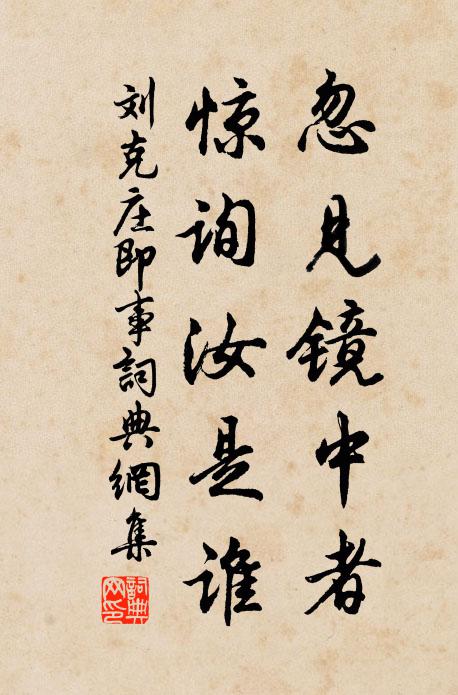 忽见镜中者
惊询汝是谁
刘克庄即事詞典網集
詞典网印